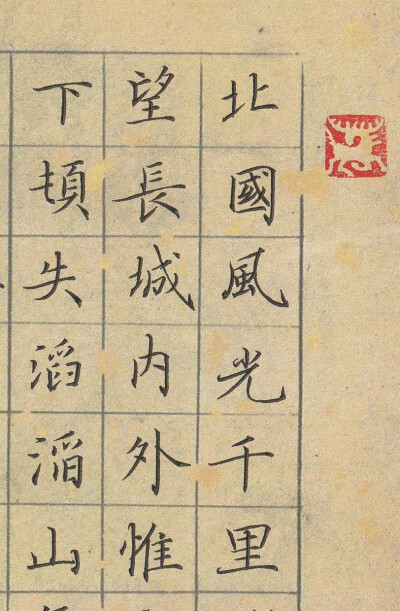 北國風光千里
望長城內外惟
下頓失滔滔山